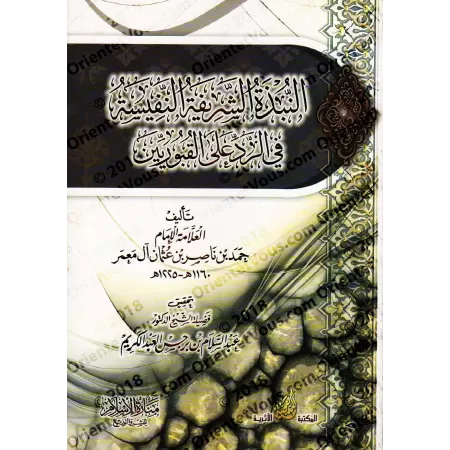 النُّبْذَةُ الشَّرِيفَةُ النَّفِيسَةُ
فِي الرَّدِّ عَلَى القُبُورِيِّينَ
تأليف
العلامة الإمام
حمد بن ناصر بن عثمان آل معمر
١١٦٠هـ - ١٢٢٥هـ
تحقيق
فضيلة الشيخ الدكتور
عبد السلام بن برجس العبد الكريم
منارة الإسلام
للنشر والتوزيع
المكتبة الأثرية
© 2018 OrientetVous.com